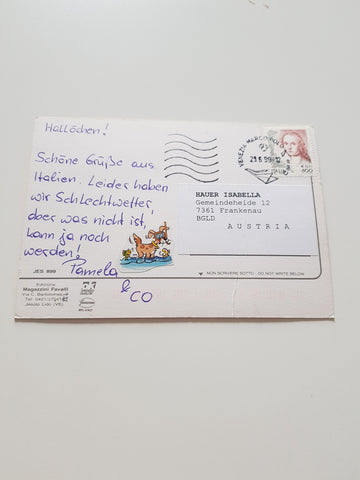 Hallöchen!
Schöne Grüße aus
Italien. Leider haben
wir Schlechtwetter
aber was nicht ist,
kann ja noch
werden!
Pamela
& CO
VENEZIA MARCO POLO
23.6.99-12
800
HAUER ISABELLA
Gemeindeheide 12
7361 Frankenau
BGLD
AUSTRIA
JES 890
NON SCRIVERE SOTTO - DO NOT WRITE BELOW
Edizione
Magazzini Favelli
Jesolo Lido (VE)
MILANO